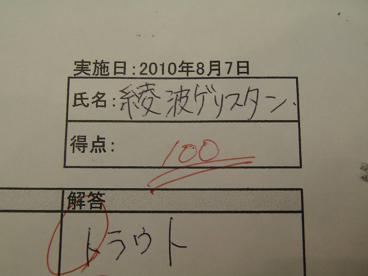 実施日:2010年8月7日
氏名: 綾波ゲリスタン.
得点: 100
解答
トラウト